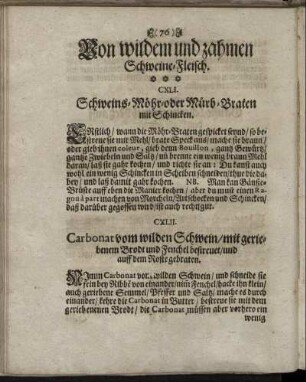 (76)
Von wildem und zahmen
Schweine-Fleisch.
CXLI.
Schweins-Möhr- oder Mürb-Braten
mit Schincken.
ERstlich / wann die Möhr-Braten gespicket seynd / so be-
streue sie mit Mehl / brate Speck aus / mache sie braun /
oder gieb ihnen couleur, gieb Bouillon, gantz Gewürtz /
gantze Zwiebeln und Saltz / und brenne ein wenig braun Mehl
daran / laß sie gahr kochen / und richte sie an: Du kanst auch
wohl ein wenig Schincken in Scheiben schneiden / thue die da-
bey / und laß damit gahr kochen. NB. Man kan Gänse-
Brüste auff eben die Manier kochen / aber du must einen Ra-
goud part machen von Morcheln / Artschocken und Schincken /
daß darüber gegossen wird / ist auch recht gut.
CXLII.
Carbonat vom wilden Schwein / mit gerie-
benem Brodt und Fenchel bestreuet / und
auff dem Rost gebraten.
NImm Carbonat vom wilden Schwein / und schneide sie
fein bey Ribb' von einander / nim Fenchel / hacke ihn klein /
auch geriebene Semmel / Pfeffer und Saltz / mache es durch
einander / kehre die Carbonat in Butter / bestreue sie mit dem
geriebenen Brodt / die Carbonat müssen aber vorhero ein
wenig